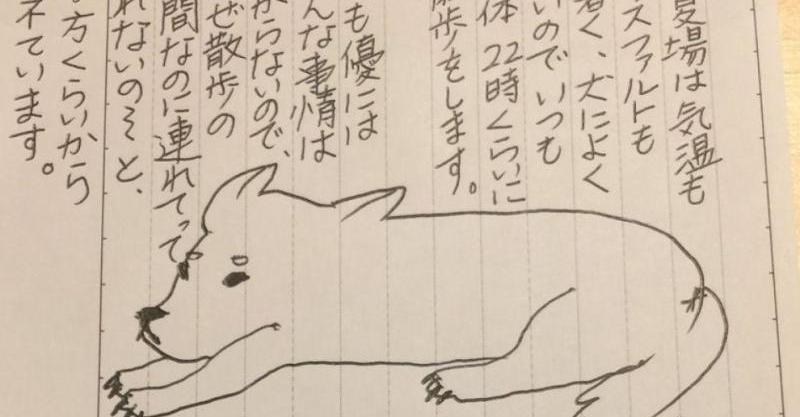 夏場は気温も
スファルトも
暑く、犬によく
いのでいつも
体22時くらいに
歩をします。
も優には
んな事情は
からないので、
ぜ散歩の
間なのに連れてって
れないの?と、
方くらいから
ネています。